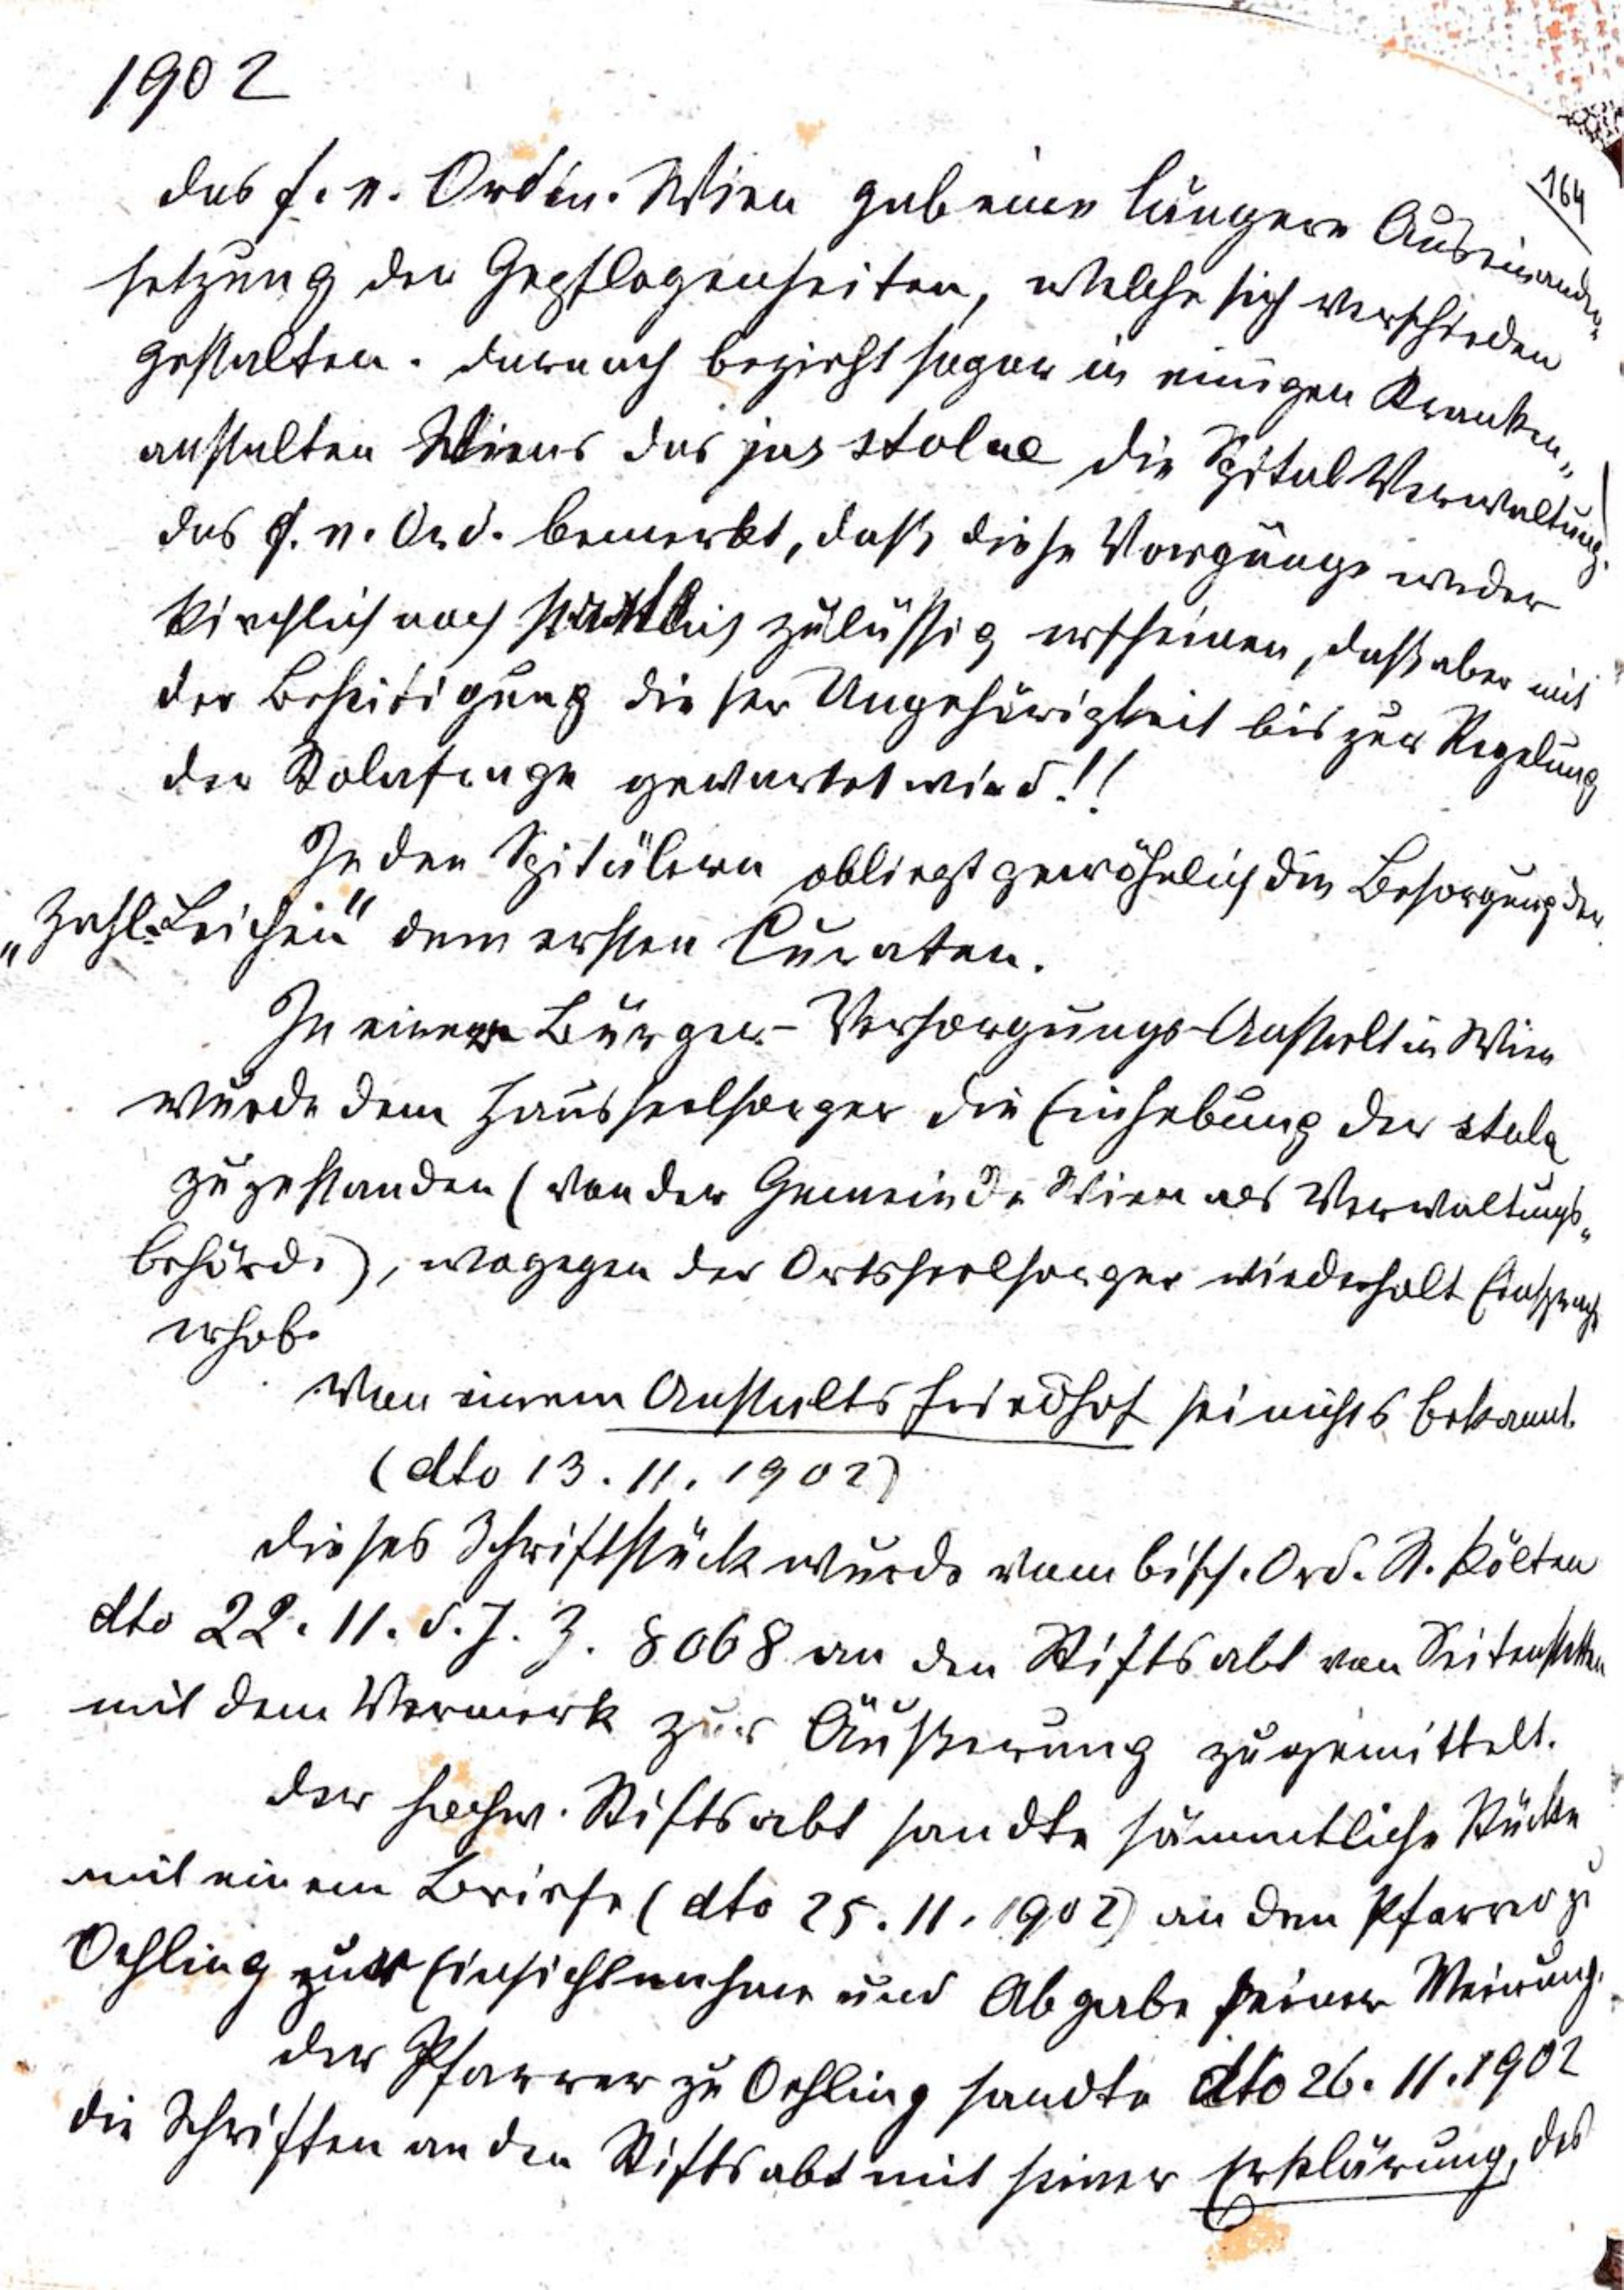 1902
164
das f. e. Ordin. Wien gab eine längere Auseinander-
setzung der Gepflogenheiten, welche sich verschieden
gestalten. Darnach bezieht sogar in einigen Kranken-
anstalten Wiens das jus stolae die Spital Verwaltung!
das f. e. Ord. bemerkt, daß diese Vorgänge weder
kirchlich noch staatlich zulässig erscheinen, daß aber mit
der Beseitigung dieser Ungehörigkeit bis zur Regelung
der Stolafrage gewartet wird!!
In den Spitälern obliegt gewöhnlich die Besorgung der
„Zahl-Leichen" dem ersten Curaten.
In einer Bürger-Versorgungs-Anstalt in Wien
wurde dem Hausseelsorger die Einhebung der stola
zugestanden (von der Gemeinde Wien als Verwaltungs-
behörde), wogegen der Ortsseelsorger wiederholt Einsprache
erhob.
Von einem Anstaltsfriedhof sei nichts bekannt.
(dto 13. 11. 1902)
Dieses Schriftstück wurde vom bisch. Ord. St. Pölten
dto 22. 11. d. J. Z. 8068 an den Stiftsabt von Seitenstetten
mit dem Vermerk zur Äußerung zugemittelt.
Der hochw. Stiftsabt sandte sämmtliche Stücke
mit einem Briefe (dto 25. 11. 1902) an den Pfarrer zu
Oehling zur Einsichtnahme und Abgabe seiner Meinung.
Der Pfarrer zu Oehling sandte dto 26. 11. 1902
die Schriften an den Stiftsabt mit seiner Erklärung, das